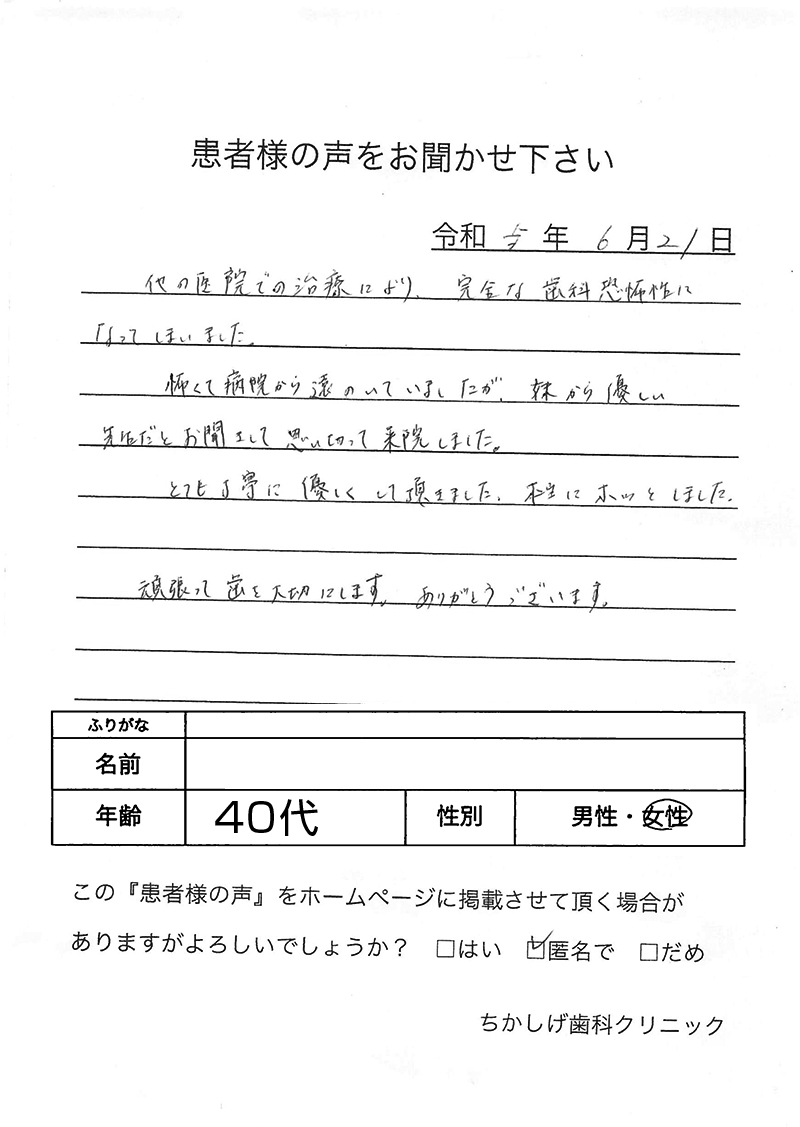 患者様の声をお聞かせ下さい
令和 5 年 6 月 21 日
他の医院での治療により、完全な歯科恐怖性に
なってしまいました。
怖くて病院から遠のいていましたが、妹から優しい
先生だとお聞きして思い切って来院しました。
とても丁寧に優しくして頂きました。本当にホッとしました。
頑張って歯を大切にします。ありがとうございます。
ふりがな
名前
年齢 40代 性別 男性・女性
この『患者様の声』をホームページに掲載させて頂く場合が
ありますがよろしいでしょうか? □はい ☑匿名で □だめ
ちかしげ歯科クリニック